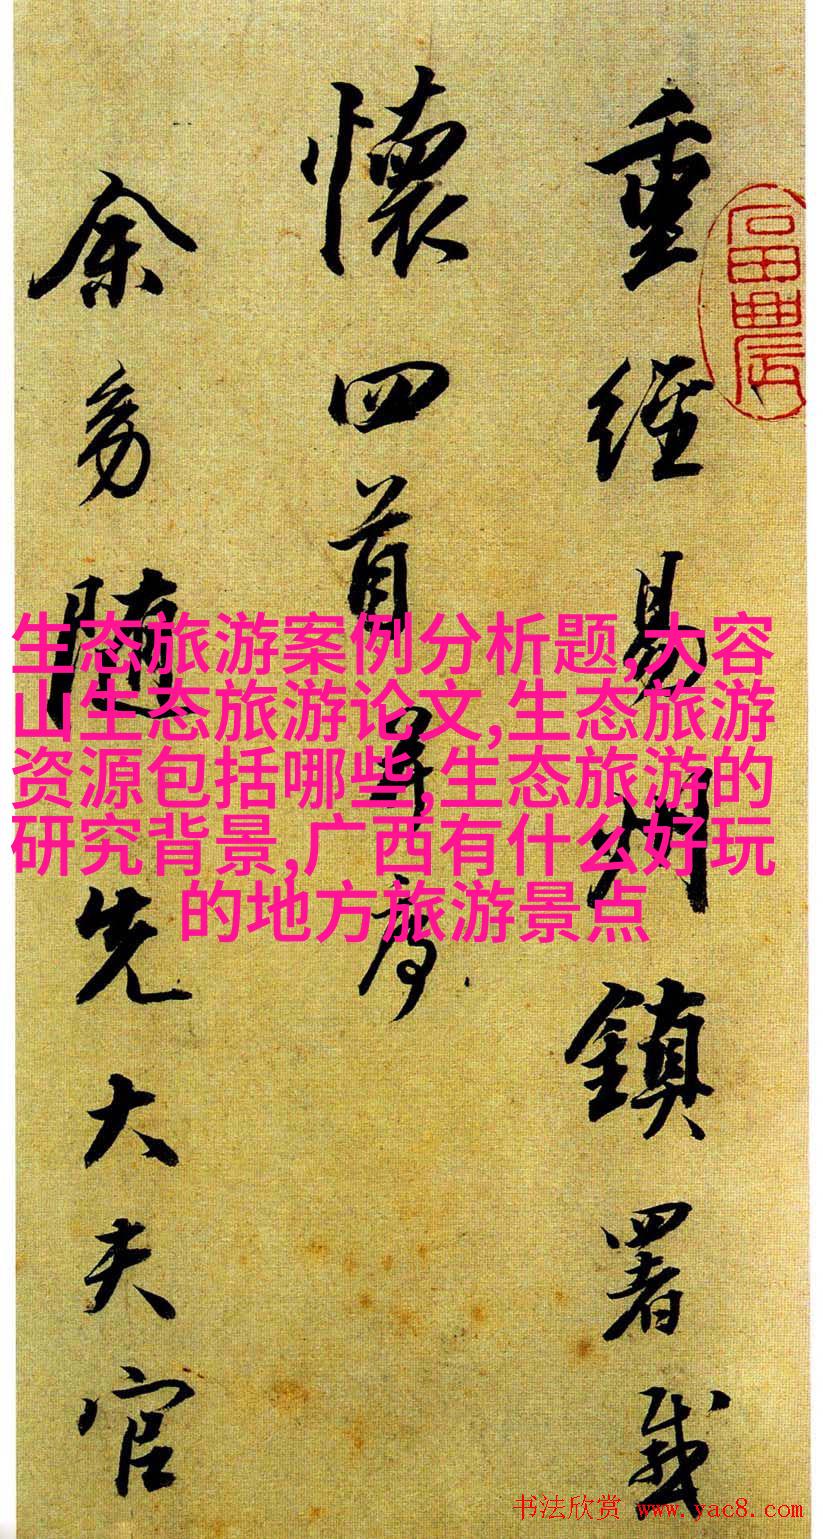 重經易州鎮署感
懷四首并序
余幼隨先大夫官
生态旅游案例分析题,大容
山生态旅游论文,生态旅游
资源包括哪些,生态旅游的
研究背景,广西有什么好玩
的地方旅游景点
书法欣赏 www.yac8.com